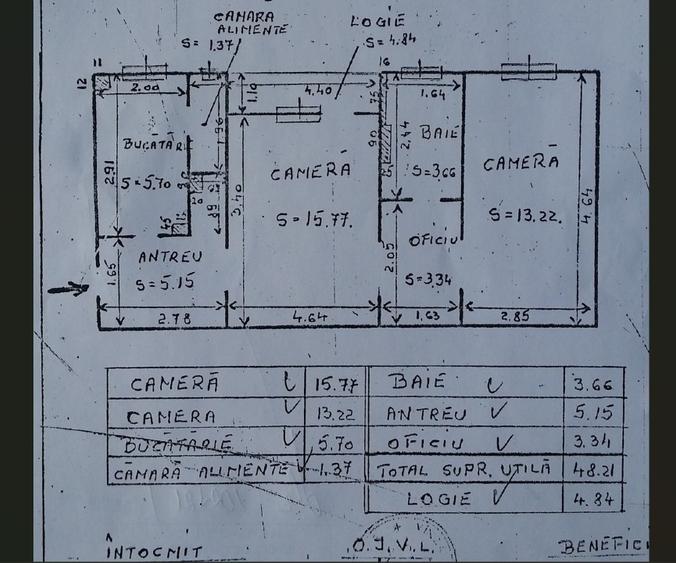 CAMARA
ALIMENTE
S= 1.37
LOGIE
S= 4.84
11
12
2.00
1.10
4.40
16
75
1.64
BUCATĂRIE
S=5.70
2.91
1.96
CAMERĂ
S=15.77.
3.40
90
2.44
BAIE
S=3.66
CAMERĂ
S=13.22.
4.64
45
89
ANTREU
S=5.15
1.65
OFICIU
S=3.34
2.05
2.78
4.64
1.63
2.85
CAMERĂ 15.77 BAIE 3.66
CAMERA 13.22 ANTREU 5.15
BUCĂTĂRIE 5.70 OFICIU 3.34
CĂMARĂ ALIMENTE 1.37 TOTAL SUPR. UTILĂ 48.21
LOGIE 4.84
ÎNTOCMIT O.J.V.L. BENEFICI